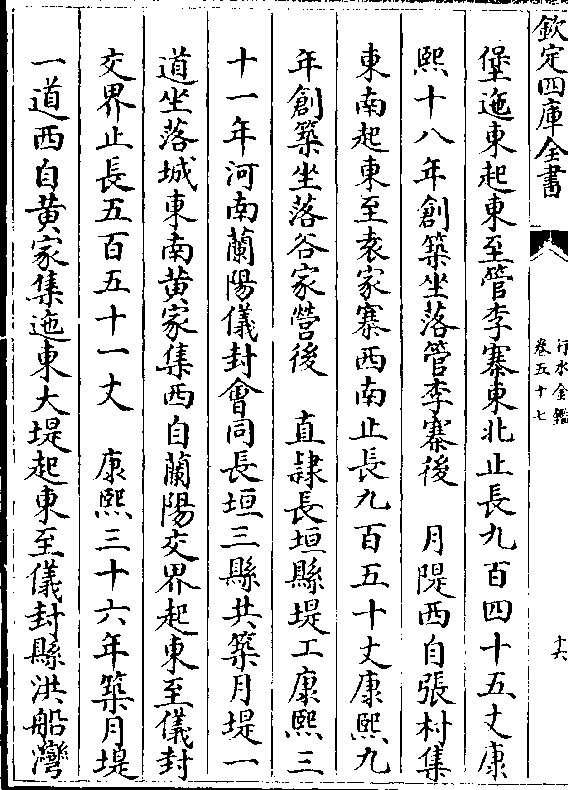 欽定四庫全書
行水金鑑
卷五十七
十六
堡迤東起東至管李寨東北止長九百四十五丈康
熙十八年創築坐落管李寨後　月隄西自張村集
東南起東至袁家寨西南止長九百五十丈康熙九
年創築坐落谷家營後　直隷長垣縣堤工康熙三
十一年河南蘭陽儀封會同長垣三縣共築月堤一
道坐落城東南黄家集西自蘭陽交界起東至儀封
交界止長五百五十一丈　康熙三十六年築月堤
一道西自黄家集迤東大堤起東至儀封縣洪船灣